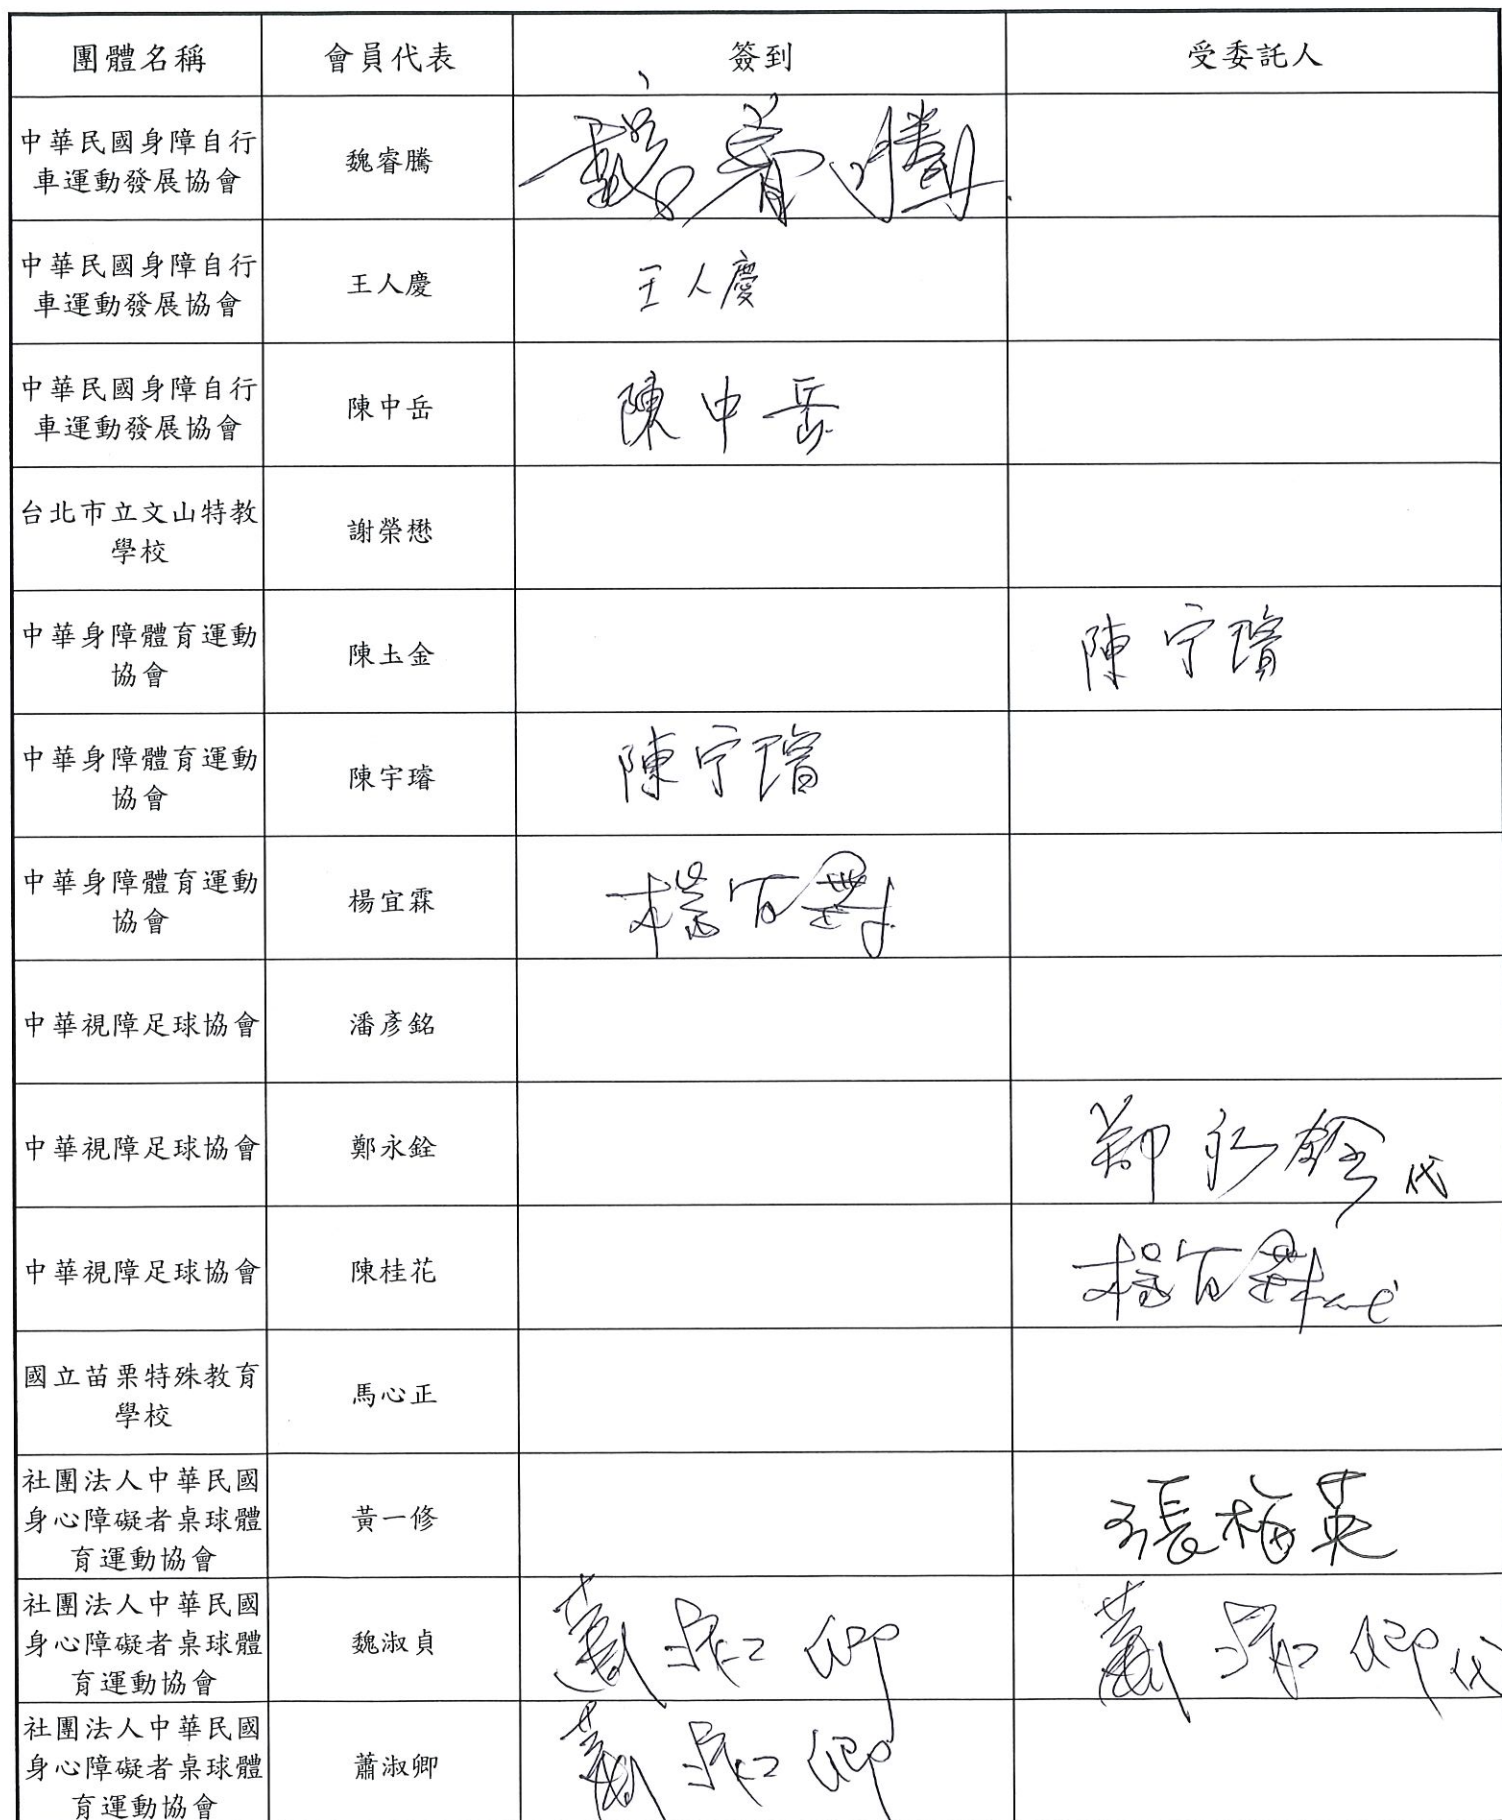 團體名稱 會員代表 簽到 受委託人
中華民國身障自行
車運動發展協會
魏睿騰 魏睿騰
中華民國身障自行
車運動發展協會
王人慶 王人慶
中華民國身障自行
車運動發展協會
陳中岳 陳中岳
台北市立文山特教
學校
謝榮懋
中華身障體育運動
協會
陳圡金 陳宇璿
中華身障體育運動
協會
陳宇璿 陳宇璿
中華身障體育運動
協會
楊宜霖 楊宜霖
中華視障足球協會 潘彥銘
中華視障足球協會 鄭永銓 鄭永銓代
中華視障足球協會 陳桂花 楊宜霖
國立苗栗特殊教育
學校
馬心正
社團法人中華民國
身心障礙者桌球體
育運動協會
黃一修 張梅英
社團法人中華民國
身心障礙者桌球體
育運動協會
魏淑貞 蕭淑卿 蕭淑卿代
社團法人中華民國
身心障礙者桌球體
育運動協會
蕭淑卿 蕭淑卿